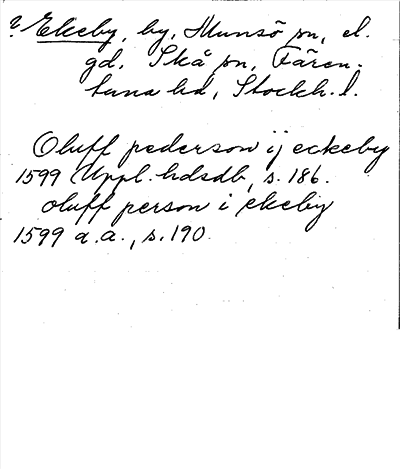 ? Ekeby, by, Munsö sn, el.
gd, Skå sn, Fären-
tuna hd, Stockh. l.
Oluff pederson ij eckeby
1599 Uppl. hdsdb, s. 186.
oluff person i ekeby
1599 a.a., s. 190.